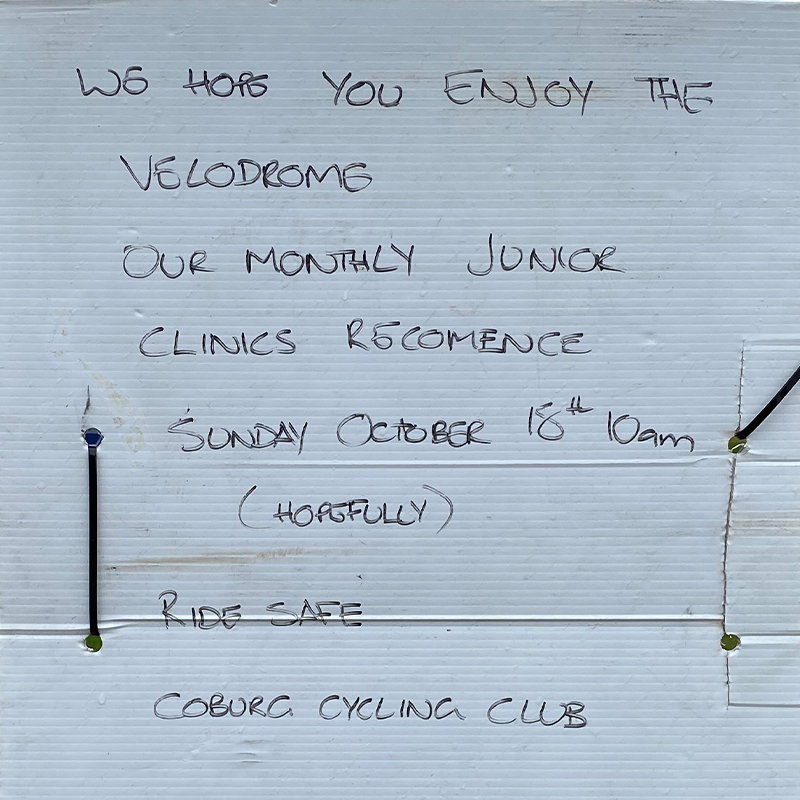 WE HOPE YOU ENJOY THE
VELODROME
OUR MONTHLY JUNIOR
CLINICS RECOMENCE
SUNDAY OCTOBER 18th 10am
(HOPEFULLY)
RIDE SAFE
COBURG CYCLING CLUB